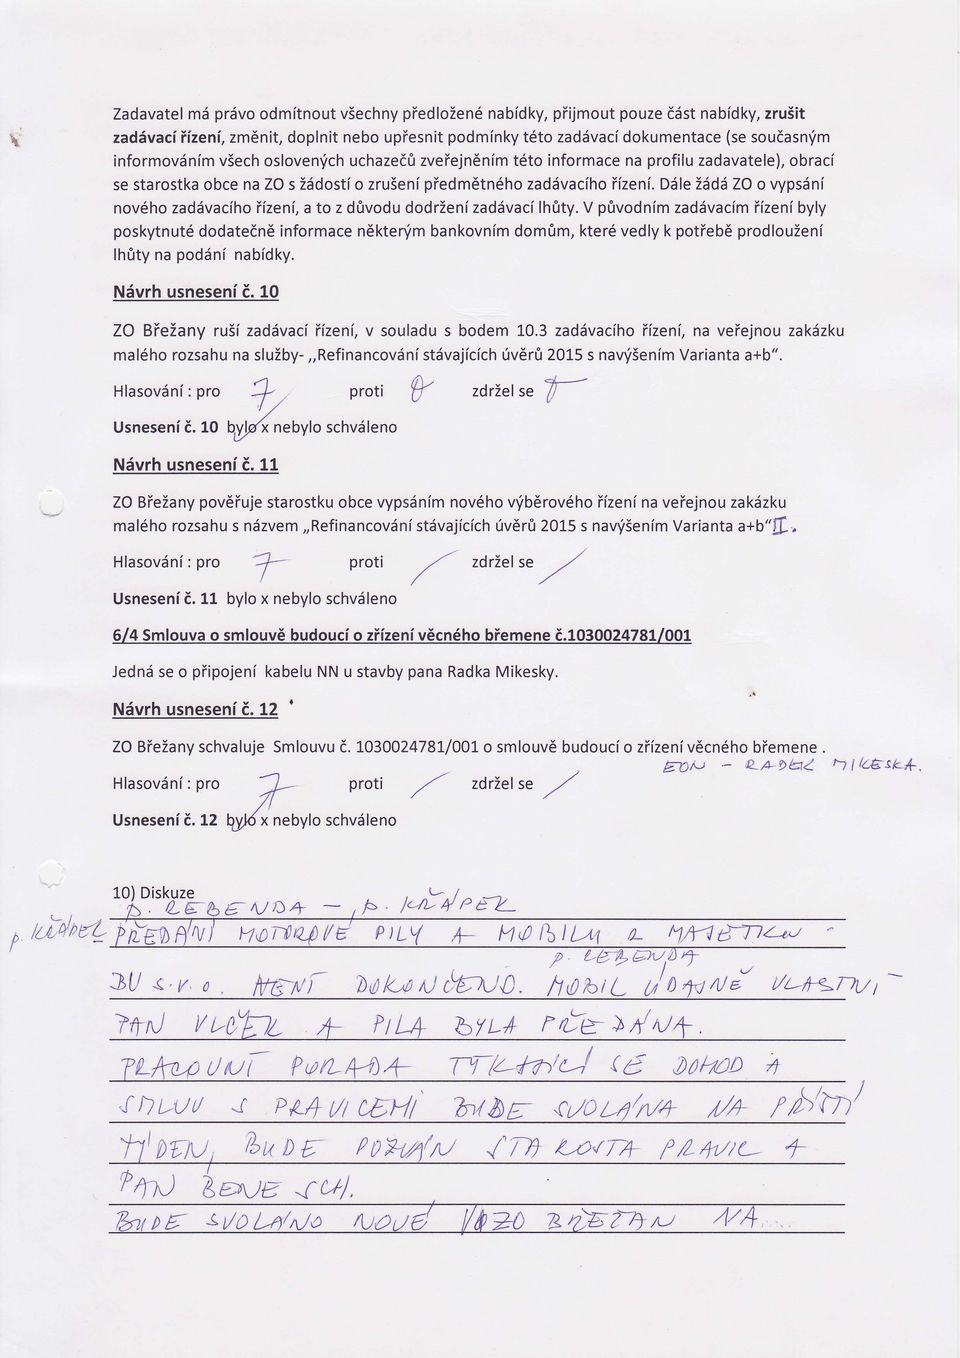 Zadavatel má právo odmítnout všechny předložené nabídky, přijmout pouze část nabídky, zrušit
zadávací řízení, změnit, doplnit nebo upřesnit podmínky této zadávací dokumentace (se současným
informováním všech oslovených uchazečů zveřejněním této informace na profilu zadavatele), obrací
se starostka obce na ZO s žádostí o zrušení předmětného zadávacího řízení. Dále žádá ZO o vypsání
nového zadávacího řízení, a to z důvodu dodržení zadávací lhůty. V původním zadávacím řízení byly
poskytnuté dodatečně informace některým bankovním domům, které vedly k potřebě prodloužení
lhůty na podání nabídky.
Návrh usnesení č. 10
ZO Břežany ruší zadávací řízení, v souladu s bodem 10.3 zadávacího řízení, na veřejnou zakázku
malého rozsahu na služby- „Refinancování stávajících úvěrů 2015 s navýšením Varianta a+b“.
Hlasování : pro 7 proti 0 zdržel se
Usnesení č. 10 bylo x nebylo schváleno
Návrh usnesení č. 11
ZO Břežany pověřuje starostku obce vypsáním nového výběrového řízení na veřejnou zakázku
malého rozsahu s názvem „Refinancování stávajících úvěrů 2015 s navýšením Varianta a+b“ II.
Hlasování : pro 7 proti / zdržel se /
Usnesení č. 11 bylo x nebylo schváleno
6/4 Smlouva o smlouvě budoucí o zřízení věcného břemene č.1030024781/001
Jedná se o připojení kabelu NN u stavby pana Radka Mikesky.
Návrh usnesení č. 12
ZO Břežany schvaluje Smlouvu č. 1030024781/001 o smlouvě budoucí o zřízení věcného břemene .
EON - RADEK MIKESKA.
Hlasování : pro 7 proti / zdržel se /
Usnesení č. 12 bylo x nebylo schváleno
10) Diskuze
p. LEBENDA – p. KŘÁPEK
p. KŘÁPEK PŘEDÁNÍ MOTOROVÉ PILY A MOBILU Z MAJETKU
p. LEBENDA
BU s.r.o. NENÍ DOKONČENO. MOBIL ÚDAJNĚ VLASTNÍ
PAN VLČEK A PILA BYLA PŘEDÁNA.
PRACOVNÍ PORADA TÝKAJÍCÍ SE DOHOD A
SMLUV S PRAVICEMI BUDE SVOLÁNA NA PŘÍŠTÍ
TÝDEN, BUDE POZVÁN STAROSTA PRAVIC A
PAN BENESCH.
BUDE SVOLÁNO NOVÉ ZO BŘEŽAN NA